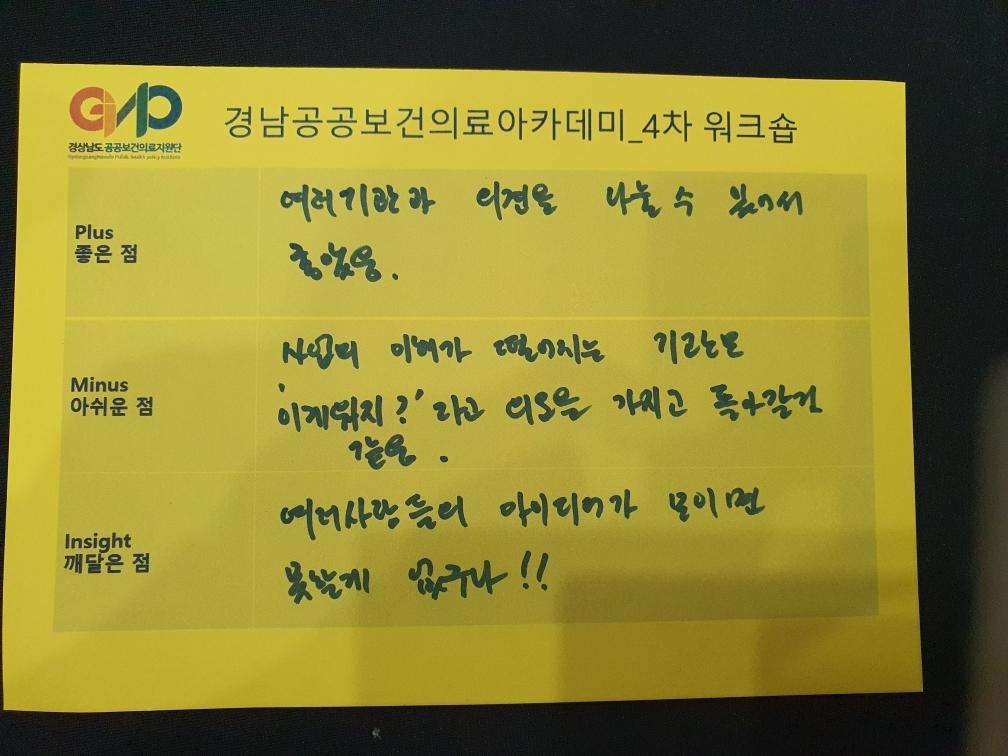 GIVD
경상남도 공공보건의료지원단
Gyeongsangnamdo Public health policy institute
경남공공보건의료아카데미_4차 워크숍
Plus
좋은 점
여러기관과 의견을 나눌 수 있어서
좋았음.
Minus
아쉬운 점
사업의 이해가 떨어지는 기관은
'이게뭐지?' 라고 의문을 가지고 돌아갈것
같음.
Insight
깨달은 점
여러사람들의 아이디어가 모이면
못할게 없구나!!